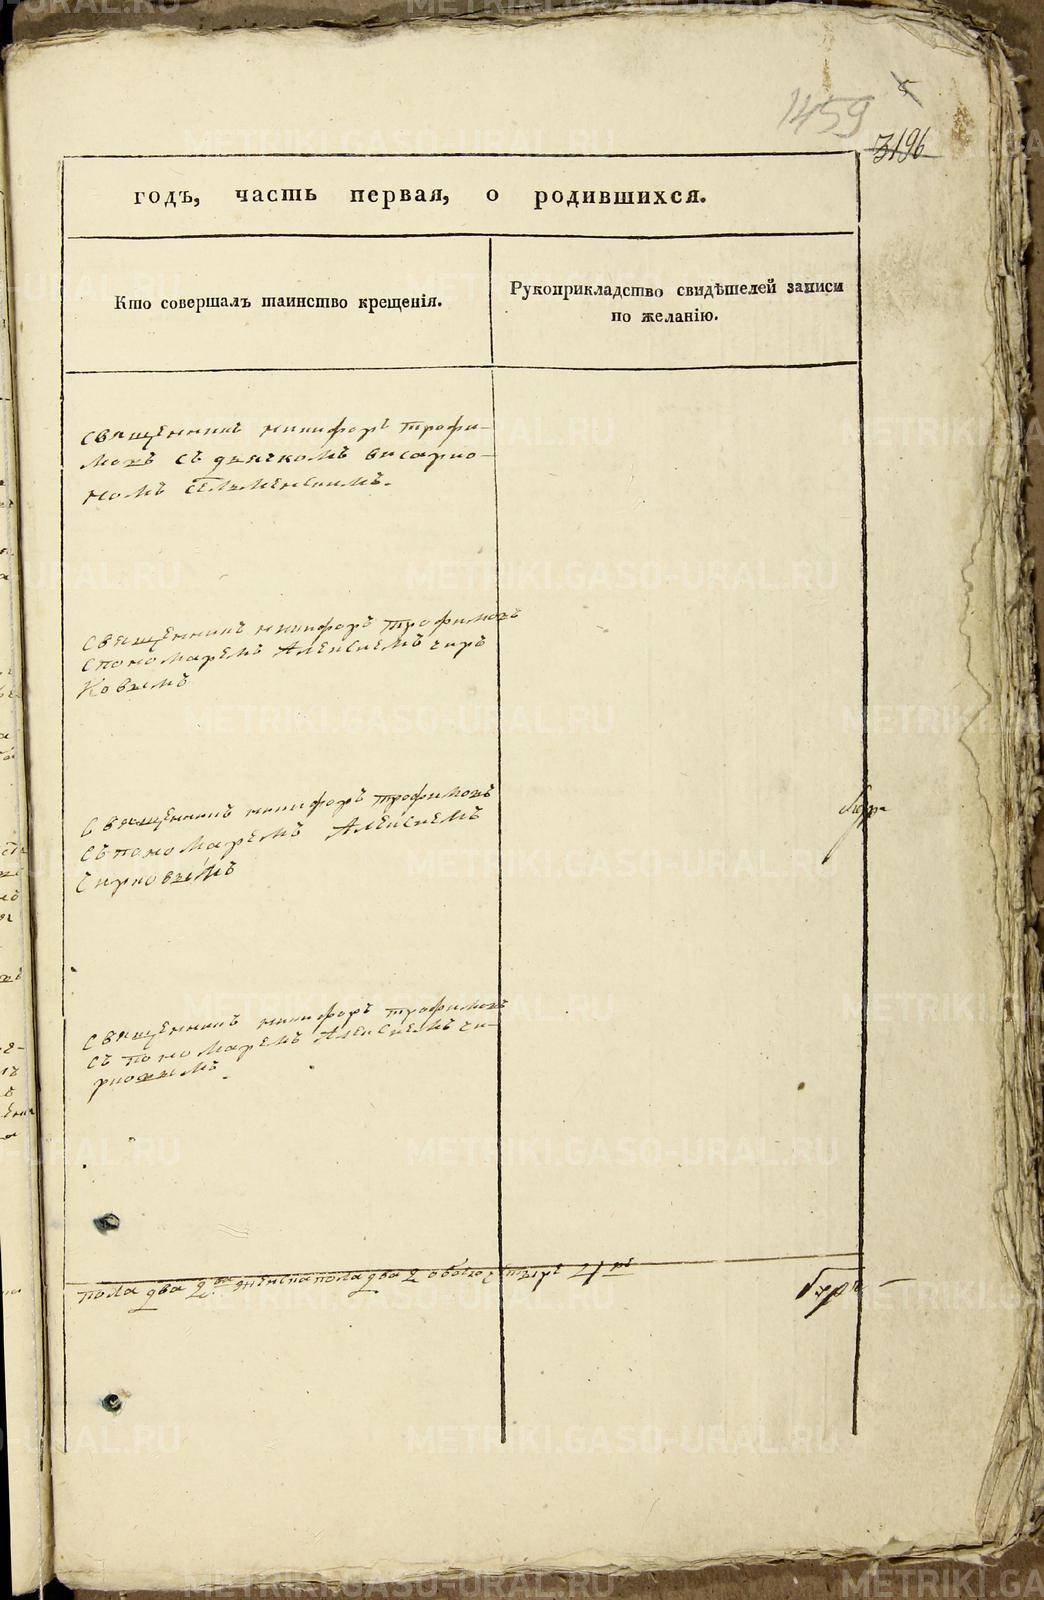 1459
3196
годъ, часть первая, о родившихся.
Кто совершалъ таинство крещенія.
Рукоприкладство свидѣтелей записи
по желанію.
священникъ никифоръ трофи-
мовъ съ дьячкомъ висарио-
номъ
священникъ никифоръ трофимовъ
спономаремъ Алексиемъ чирь
ковымъ
священникъ никифоръ трофимовъ
съ пономаремъ Алексиемъ
Чирковымъ
священникъ никифоръ трофимовъ
съ пономаремъ Алексиемъ чи-
рковымъ
пола два 2 женска пола два 2 обоего четыре 4ре
METRIKI.GASO-URAL.RU